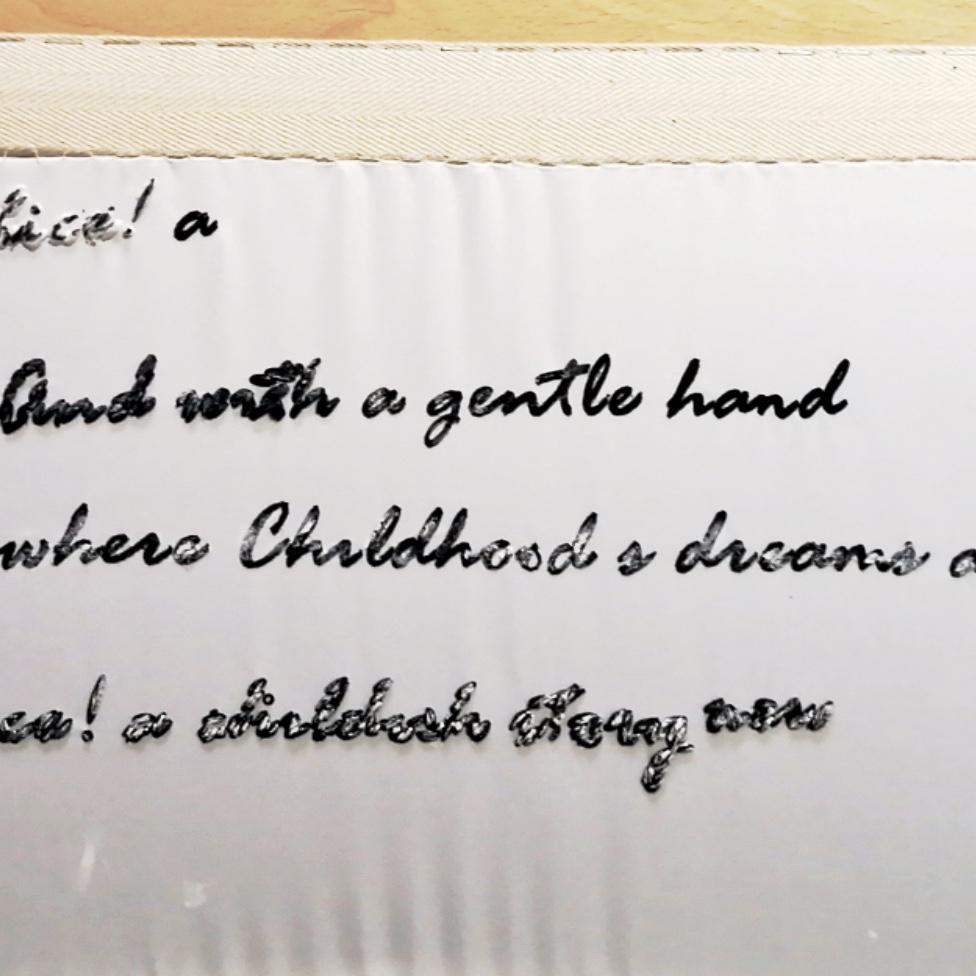 lice! a
And with a gentle hand
where Childhood s dreams a
ce! a childish story